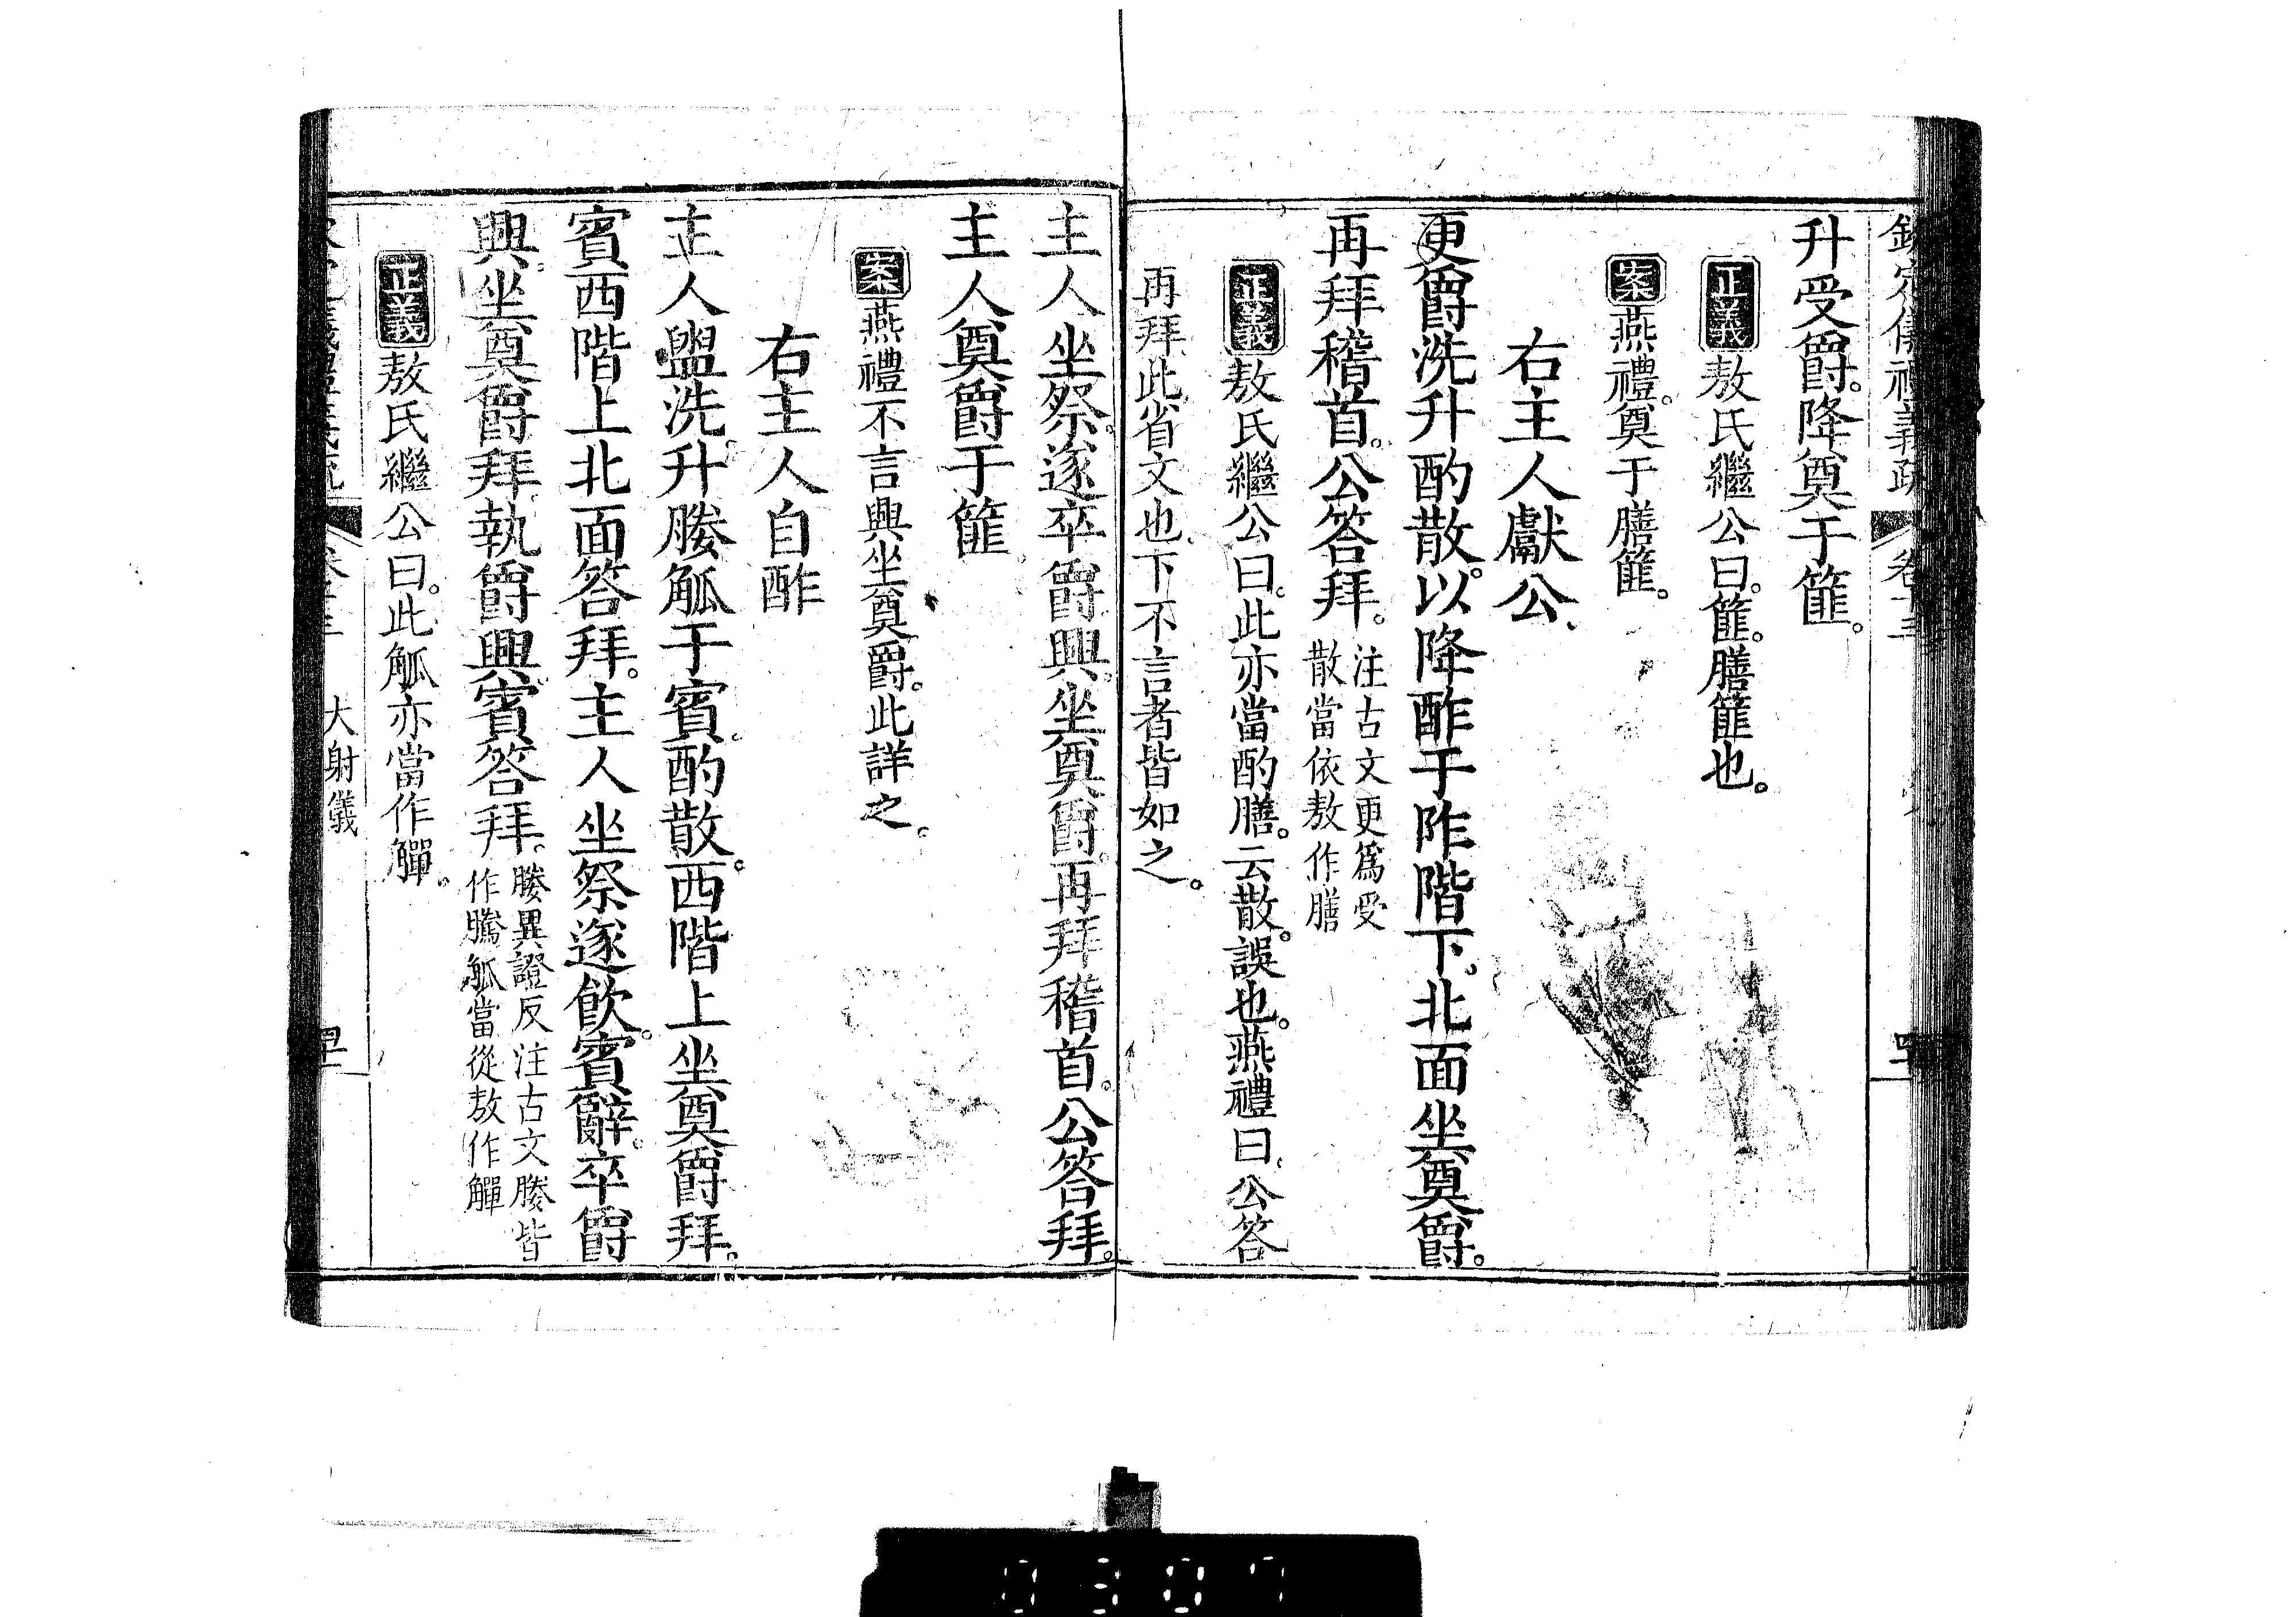 欽定儀禮義疏 卷十三
升受爵。降奠于篚。
正義敖氏繼公曰。篚。膳篚也。
案燕禮。奠于膳篚。
右主人獻公
更爵洗升酌散。以降酢于阼階下。北面坐奠爵。
再拜稽首。公答拜。注古文更爲受
散當依敖作膳
正義敖氏繼公曰。此亦當酌膳。云散。誤也。燕禮曰。公答
再拜。此省文也。下不言者皆如之。
主人坐祭。遂卒爵興。坐奠爵。再拜稽首。公答拜。
主人奠爵于篚
案燕禮不言興坐奠爵。此詳之。
右主人自酢
主人盥洗。升媵觚于賓。酌散。西階上坐奠爵拜。
賓西階上北面答拜。主人坐祭遂飲。賓辭。卒爵
興。坐奠爵拜。執爵興。賓答拜。媵異證反注古文媵皆
作騰觚當從敖作觶
正義敖氏繼公曰。此觚亦當作觶。
大射儀
0307